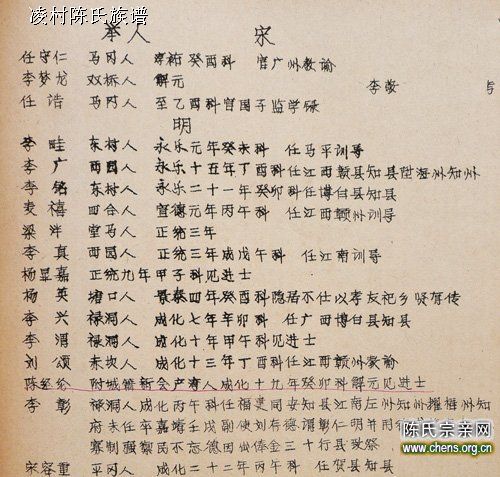 凌村陈氏族谱
举人 宋
任守仁 马冈人 淳祐癸酉科 官广州教谕
李梦龙 双桥人 解元 李敬
任诰 马冈人 至乙酉科官国子监学录
明
李畦 东村人 永乐元年癸未科 任马平训导
李广 西园人 永乐十五年丁酉科任江西赣县知县陞海州知州
李铭 东村人 永乐二十一年癸卯科任博白县知县
麦禧 四合人 宣德元年丙午科 任江西赣州训导
梁泮 堂马人 正统三年
李真 西园人 正统三年戊午科 任江南训导
杨显嘉 正统九年甲子科见进士
杨英 塘口人 景泰四年癸酉科隐居不仕以孝友祀乡贤有传
李兴 禄洞人 成化七年辛卯科 任广西博白县知县
李渭 禄洞人 成化十年甲午科见进士
刘颂 赤坎人 成化十三年丁酉科任江西赣州教谕
陈经纶 附城籍新会产湾人成化十九年癸卯科解元见进士
李彰 禄洞人成化丙午科任福建同安知县江南左州知州擢梧州知
府未任卒嘉靖壬戌副使刘存德谓彰仁明并行
寨制强禦民不忘德因做俸金三十行县致祭
宋容重 平冈人 成化二十二年丙午科 任贺县知县
陈氏宗亲网
www.chens.org.cn